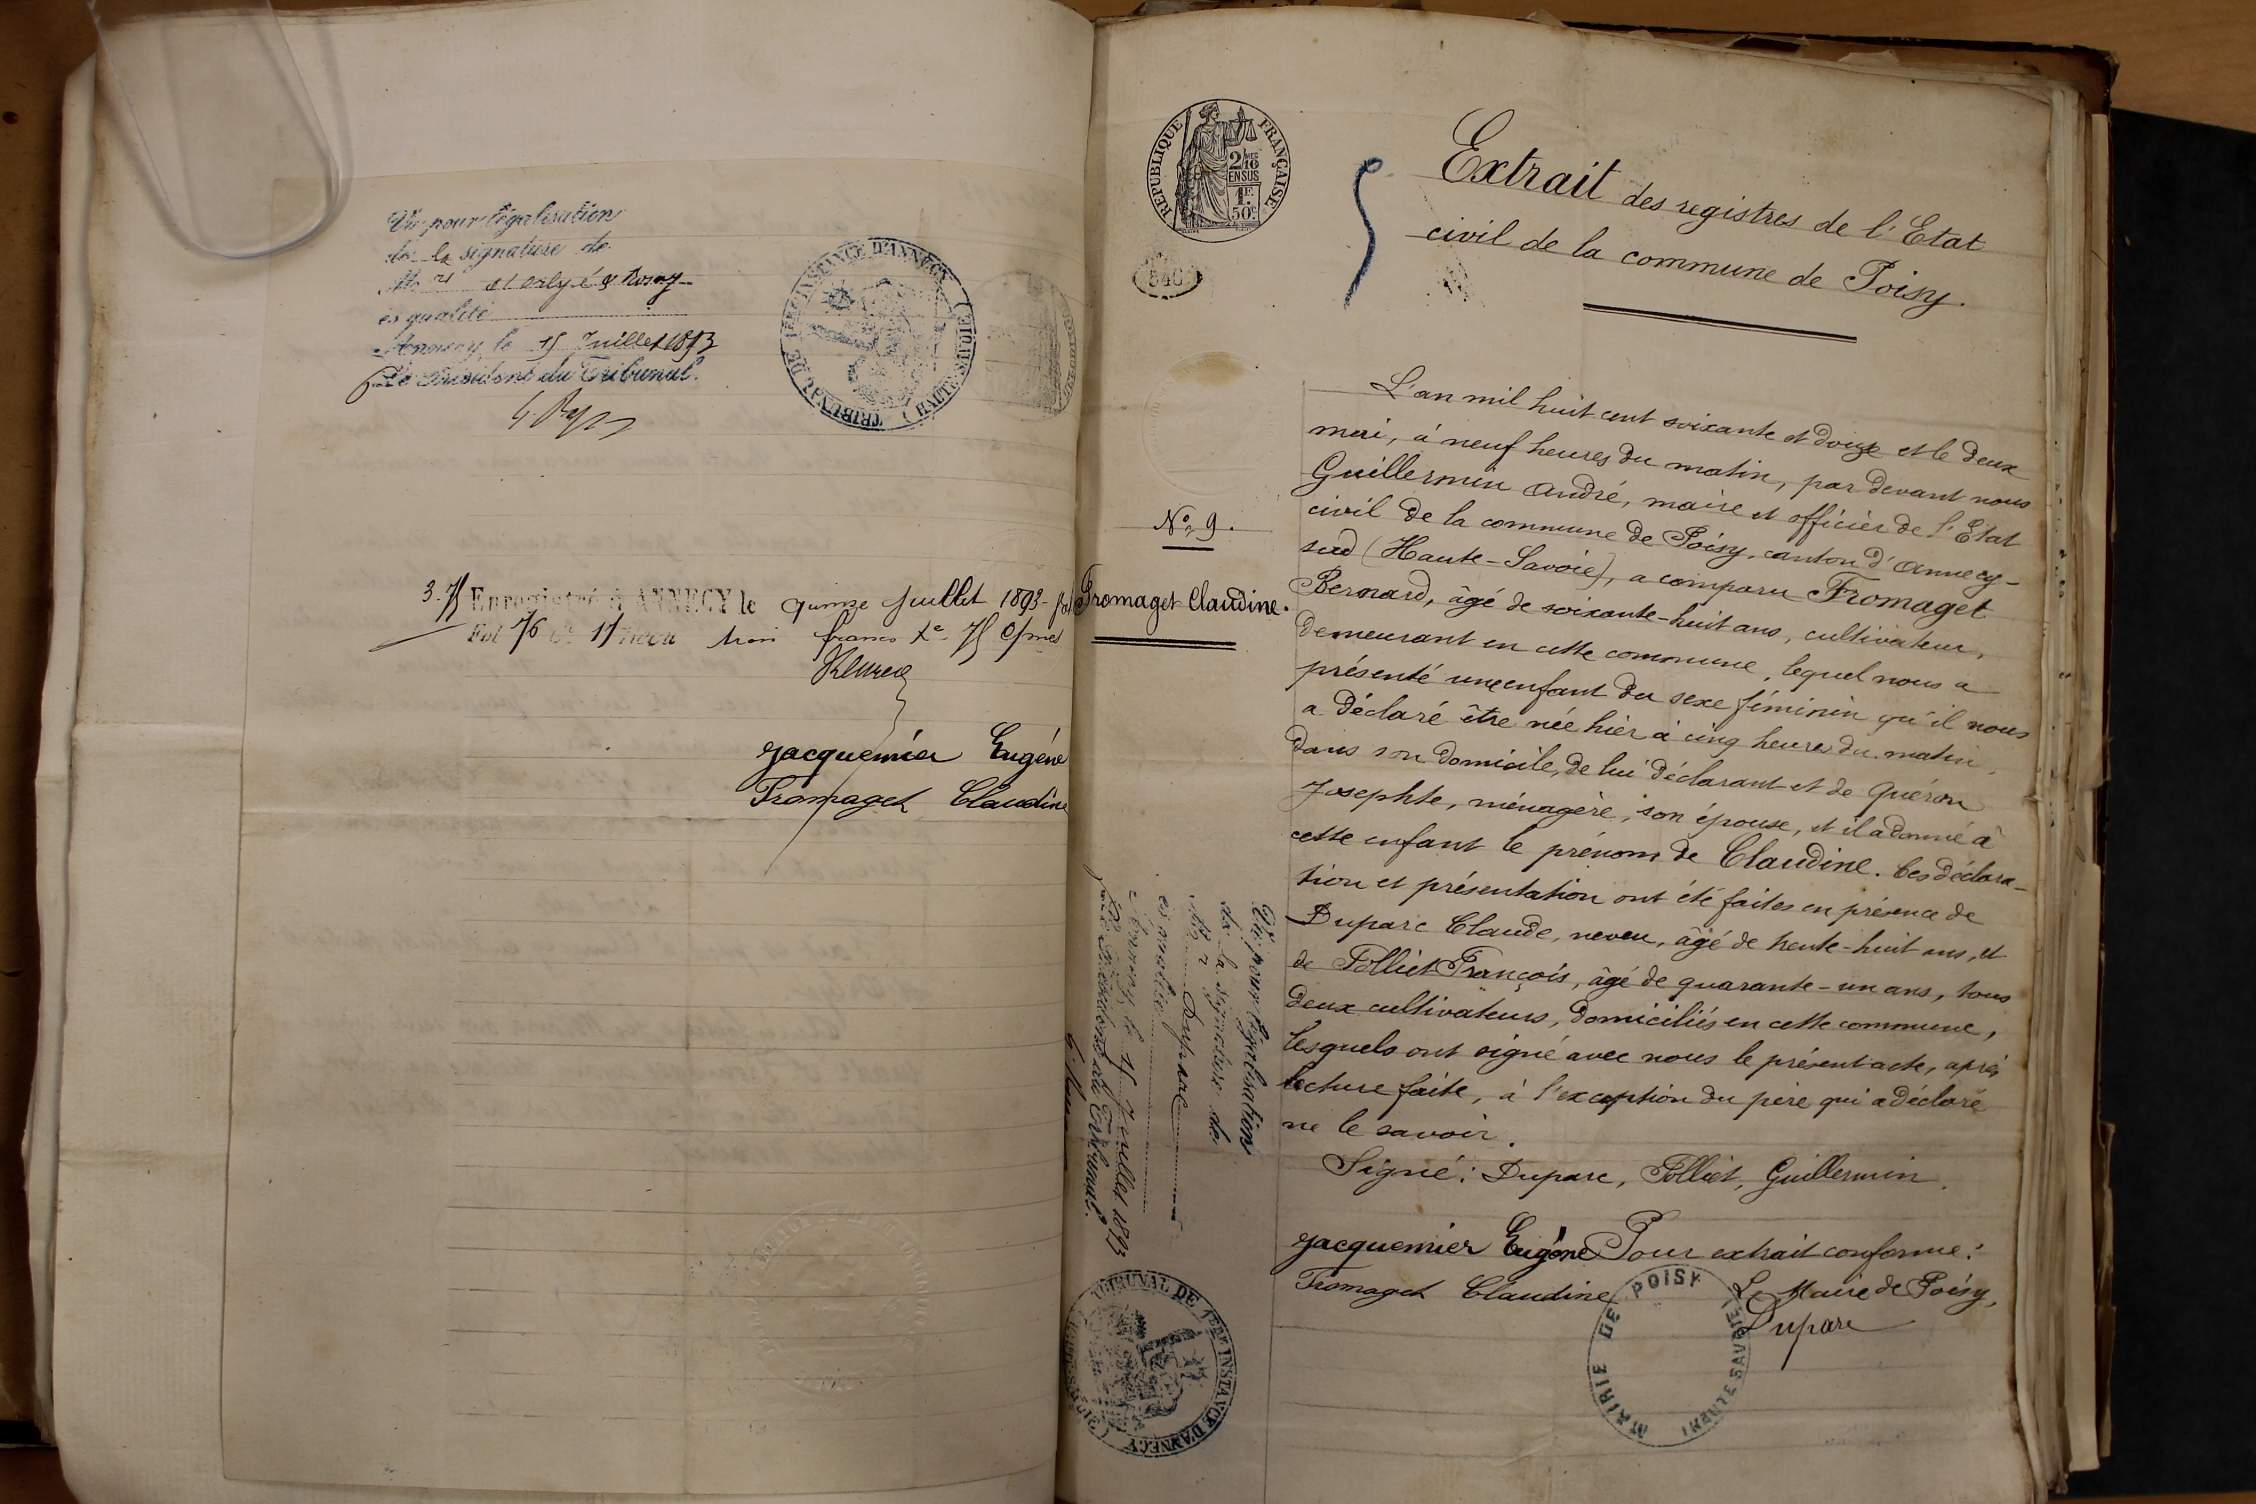 Vu pour légalisation
de la signature de
es qualité
Annecy, le 15 Juillet 1893
Le Président du Tribunal.
TRIBUNAL DE 1ÈRE INSTANCE D'ANNECY (HAUTE-SAVOIE)
3.75 Enregistré à ANNECY le quinze Juillet 1893
Fol 76 17 Reçu trois francs 75 cmes
Jacquemier Eugène
Fromaget Claudine
REPUBLIQUE FRANÇAISE
2/10 EN SUS
1F. 50c
540
Extrait des registres de l'Etat
civil de la commune de Poisy.
No 9.
Fromaget Claudine.
L'an mil huit cent soixante et douze et le deux
mai, à neuf heures du matin, par devant nous
Guillermin André, maire et officier de l'Etat
civil de la commune de Poisy, canton d'Annecy-
sud (Haute-Savoie), a comparu Fromaget
Bernard, âgé de soixante-huit ans, cultivateur,
demeurant en cette commune, lequel nous a
présenté une enfant du sexe féminin qu'il nous
a déclaré être née hier à cinq heures du matin,
dans son domicile, de lui déclarant et de Quéron
Josephte, ménagère, son épouse, et il a donné à
cette enfant le prénom de Claudine. Ces déclara-
tion et présentation ont été faites en présence de
Duparc Claude, neveu, âgé de trente-huit ans, et
de Polliet François, âgé de quarante-un ans, tous
deux cultivateurs, domiciliés en cette commune,
lesquels ont signé avec nous le présent acte, après
lecture faite, à l'exception du père qui a déclaré
ne le savoir.
Signé: Duparc, Polliet, Guillermin.
Jacquemier Eugène Pour extrait conforme:
Fromaget Claudine Le Maire de Poisy,
Duparc
MAIRIE DE POISY (HAUTE SAVOIE)
Vu pour légalisation
de la signature de
Mr Duparc
es qualité
Annecy, le 15 Juillet 1893
Le Président du Tribunal.
TRIBUNAL DE 1ÈRE INSTANCE D'ANNECY (HAUTE-SAVOIE)